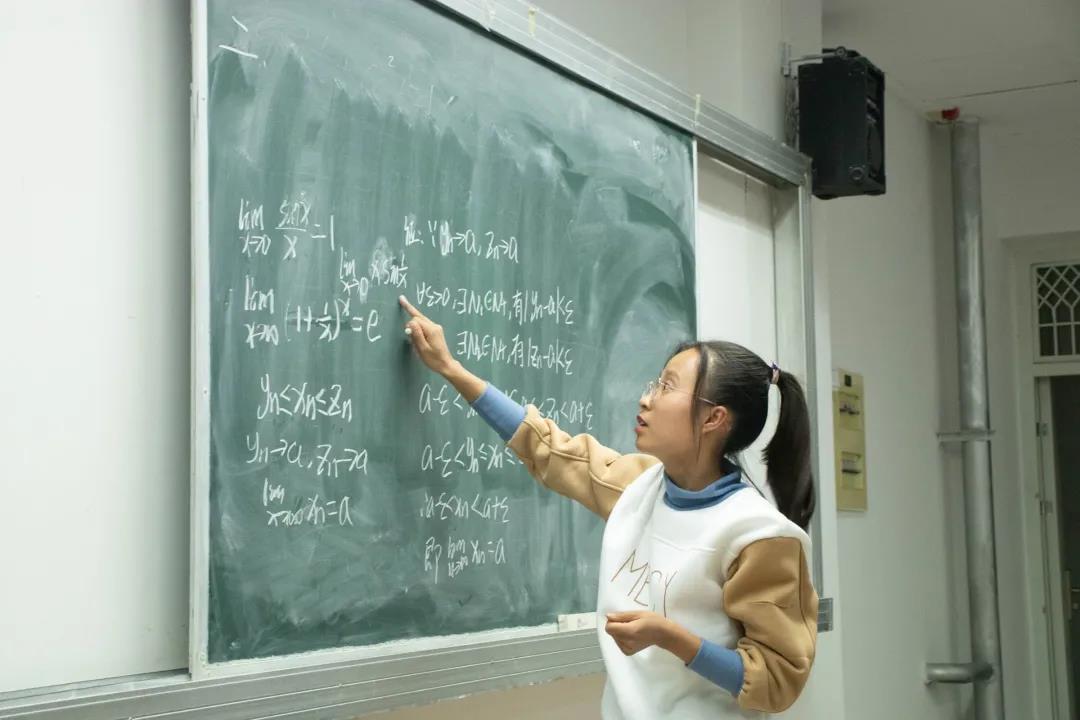 lim x→0 sinx/x = 1
lim x→0 x sin 1/x
lim x→∞ (1+1/x)^x = e
yn≤xn≤zn
yn→a, zn→a
lim xn=a
证: ∵ yn→a, zn→a
∀ε>0, ∃N1∈N+, 有|yn-a|<ε
∃N2∈N+, 有|zn-a|<ε
a-ε< zn<a+ε
a-ε<yn≤xn≤
a-ε<xn<a+ε
即 lim n→∞ xn=a